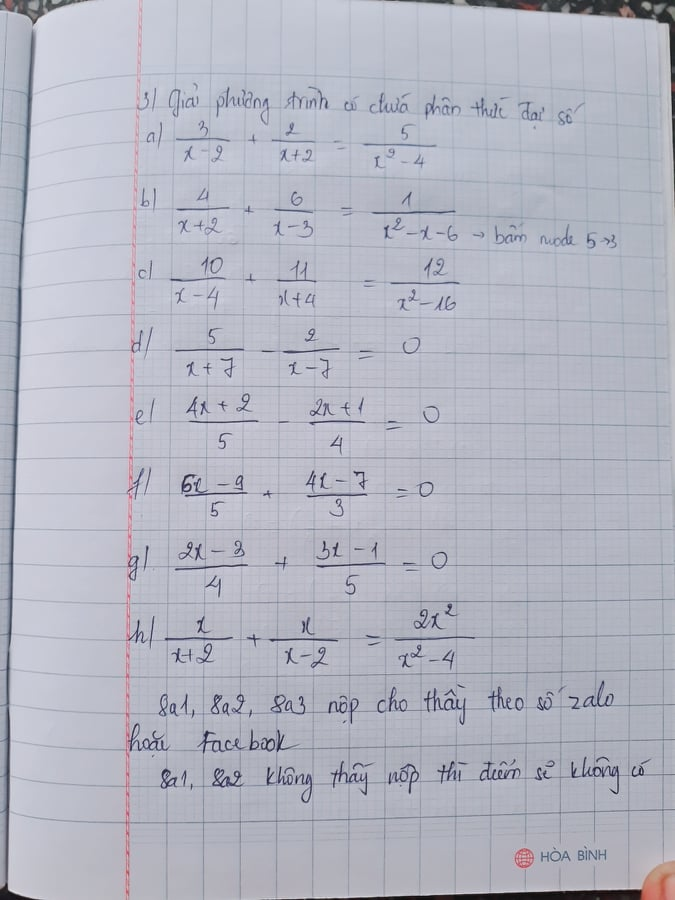 3) Giải phương trình có chứa phân thức đại số
a) 3/(x-2) + 2/(x+2) = 5/(x²-4)
b) 4/(x+2) + 6/(x-3) = 1/(x²-x-6) → bấm mode 5→3
c) 10/(x-4) + 11/(x+4) = 12/(x²-16)
d) 5/(x+7) - 2/(x-7) = 0
e) (4x+2)/5 - (2x+1)/4 = 0
f) (5x-9)/5 + (4x-7)/3 = 0
g) (2x-3)/4 + (3x-1)/5 = 0
h) x/(x+2) + x/(x-2) = 2x²/(x²-4)
8a1, 8a2, 8a3 nộp cho thầy theo số zalo
hoặc Facebook
8a1, 8a2 không thấy nộp thì điểm sẽ không có
HÒA BÌNH